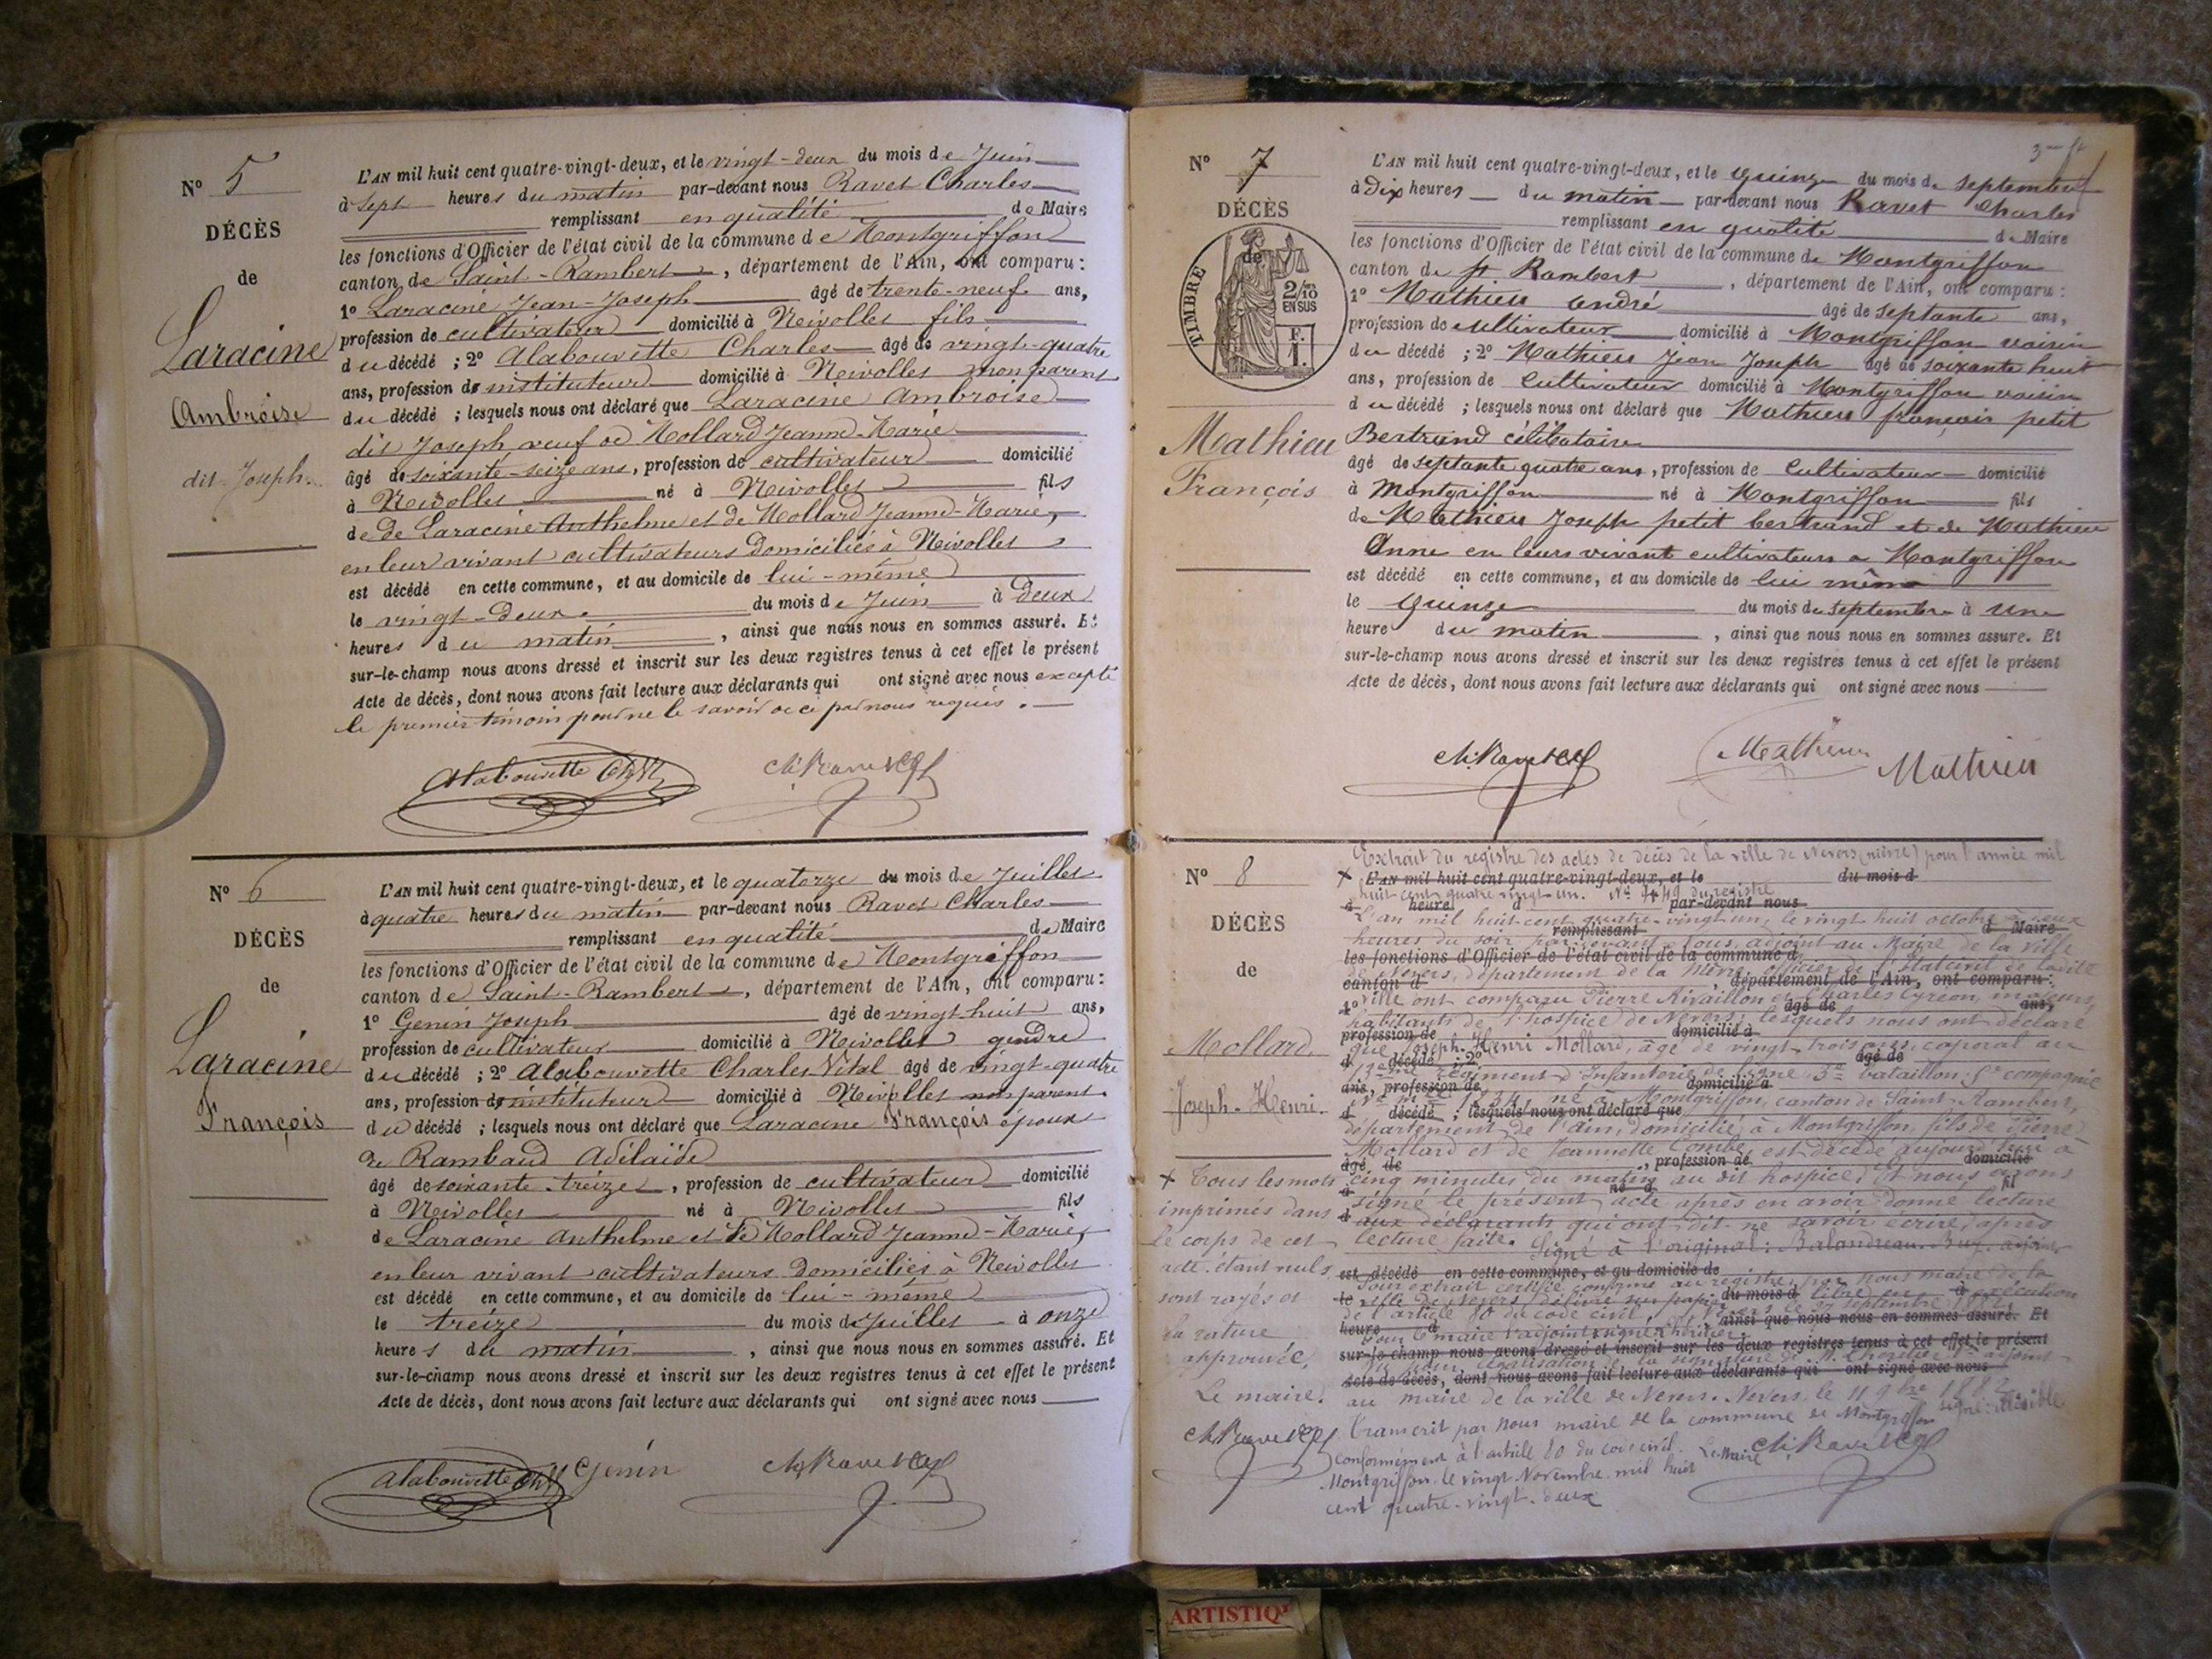 N° 5
DÉCÈS
de
Laracine
Ambroise
dit Joseph.
L'AN mil huit cent quatre-vingt-deux, et le vingt-deux du mois de Juin
à sept heures du matin par-devant nous Ravet Charles
remplissant en qualité de Maire
les fonctions d'Officier de l'état civil de la commune de Montgriffon
canton de Saint-Rambert, département de l'Ain, ont comparu :
1° Laracine Jean-Joseph âgé de trente-neuf ans,
profession de cultivateur domicilié à Neivolles fils
du décédé ; 2° Alabouvette Charles âgé de vingt-quatre
ans, profession de instituteur domicilié à Neivolles non parent
du décédé ; lesquels nous ont déclaré que Laracine Ambroise
dit Joseph veuf de Mollard Jeanne-Marie
âgé de soixante-seize ans, profession de cultivateur domicilié
à Neivolles né à Neivolles fils
de de Laracine Anthelme et de Mollard Jeanne-Marie,
en leur vivant cultivateurs domiciliés à Neivolles
est décédé en cette commune, et au domicile de lui-même
le vingt-deux du mois de Juin à deux
heures du matin, ainsi que nous nous en sommes assuré. Et
sur-le-champ nous avons dressé et inscrit sur les deux registres tenus à cet effet le présent
Acte de décès, dont nous avons fait lecture aux déclarants qui ont signé avec nous excepté
le premier témoin pour ne le savoir de ce par nous requis.
Alabouvette Ch Ch. Ravet
N° 6
DÉCÈS
de
Laracine
François
L'AN mil huit cent quatre-vingt-deux, et le quatorze du mois de Juillet
à quatre heures du matin par-devant nous Ravet Charles
remplissant en qualité de Maire
les fonctions d'Officier de l'état civil de la commune de Montgriffon
canton de Saint-Rambert, département de l'Ain, ont comparu :
1° Genin Joseph âgé de vingt huit ans,
profession de cultivateur domicilié à Neivolles gendre
du décédé ; 2° Alabouvette Charles Vital âgé de vingt-quatre
ans, profession de instituteur domicilié à Neivolles non parent
du décédé ; lesquels nous ont déclaré que Laracine François époux
de Rambaud Adélaïde
âgé de soixante-treize, profession de cultivateur domicilié
à Neivolles né à Neivolles fils
de Laracine Anthelme et de Mollard Jeanne-Marie,
en leur vivant cultivateurs domiciliés à Neivolles
est décédé en cette commune, et au domicile de lui-même
le treize du mois de Juillet à onze
heures du matin, ainsi que nous nous en sommes assuré. Et
sur-le-champ nous avons dressé et inscrit sur les deux registres tenus à cet effet le présent
Acte de décès, dont nous avons fait lecture aux déclarants qui ont signé avec nous
Alabouvette Ch Genin Ch. Ravet
N° 7
DÉCÈS
de
TIMBRE
2/10
EN SUS
F.
1.
Mathieu
François
L'AN mil huit cent quatre-vingt-deux, et le quinze du mois de septembre
à Dix heures du matin par-devant nous Ravet Charles
remplissant en qualité de Maire
les fonctions d'Officier de l'état civil de la commune de Montgriffon
canton de St Rambert, département de l'Ain, ont comparu :
1° Mathieu André âgé de septante ans,
profession de cultivateur domicilié à Montgriffon voisin
du décédé ; 2° Mathieu Jean Joseph âgé de soixante huit
ans, profession de Cultivateur domicilié à Montgriffon voisin
du décédé ; lesquels nous ont déclaré que Mathieu françois petit
Bertrand célibataire
âgé de septante quatre ans, profession de Cultivateur domicilié
à Montgriffon né à Montgriffon fils
de Mathieu Joseph petit bertrand et de Mathieu
Anne en leurs vivant cultivateurs a Montgriffon
est décédé en cette commune, et au domicile de lui même
le quinze du mois de septembre à une
heure du matin, ainsi que nous nous en sommes assuré. Et
sur-le-champ nous avons dressé et inscrit sur les deux registres tenus à cet effet le présent
Acte de décès, dont nous avons fait lecture aux déclarants qui ont signé avec nous
Ch. Ravet Mathieu Mathieu
N° 8
DÉCÈS
de
Mollard
Joseph-Henri.
+ Tous les mots
imprimés dans
le corps de cet
acte étant nuls
sont rayés et
la rature
approuvée.
Le maire.
Ch. Ravet
Extrait du registre des actes de décès de la ville de Nevers (nièvre) pour l'année mil
+ L'AN mil huit cent quatre-vingt-deux, et le du mois d
huit cent quatre vingt un. du registre
heures d par-devant nous
L'an mil huit cent quatre-vingt un, le vingt huit octobre à deux
remplissant d Maire
heures du soir par devant Nous, adjoint au Maire de la ville
les fonctions d'Officier de l'état civil de la commune d
de Nevers, département de la Nièvre, officier de l'état civil de la dite
canton d département de l'Ain, ont comparu :
ville ont comparu Pierre Rivaillon et Charles Cyreon, majeurs,
1° âgé de ans,
habitants de l'hospice de Nevers; lesquels nous ont déclaré
profession de domicilié à
que Joseph-Henri Mollard, âgé de vingt-trois ans, caporal au
d décédé ; 2° âgé de
régiment d'Infanterie de ligne 3e bataillon, compagnie
ans, profession de domicilié à
né à Montgriffon, canton de Saint-Rambert,
d décédé ; lesquels nous ont déclaré que
département de l'ain, domicilié à Montgriffon, fils de Pierre
Mollard et de Jeannette Combe, est décédé aujourd'hui à
âgé de, profession de domicilié
cinq minutes du matin au dit hospice; Et nous avons
à né à fil
signé le présent acte après en avoir donné lecture
d
aux déclarants qui ont dit ne savoir écrire, après
lecture faite. Signé à l'original: Balandreau
est décédé en cette commune, et au domicile de
Pour extrait certifié conforme au registre, par nous maire de la
le du mois d à
ville de Nevers, délivré sur papier libre en exécution
de l'article 80 du code civil. Nevers ce septembre
heure d ainsi que nous nous en sommes assuré. Et
Pour le maire l'adjoint signé
sur-le-champ nous avons dressé et inscrit sur les deux registres tenus à cet effet le présent
légalisation de la signature de
Acte de décès, dont nous avons fait lecture aux déclarants qui ont signé avec nous
au maire de la ville de Nevers. Nevers le 11 9bre 1882 signé: illisible
Transcrit par nous maire de la commune de Montgriffon
conformément à l'article 80 du code civil. Le Maire Ch. Ravet
Montgriffon le vingt Novembre mil huit
cent quatre-vingt-deux
ARTISTIQ